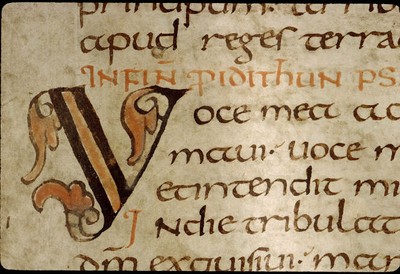 principum. terribi
apud reges terra
IN FINṄ pro idithun ps
Voce mea ad
maui. uoce m
et intendit mi
IN die tribulat
dm̄ exquisiui. man